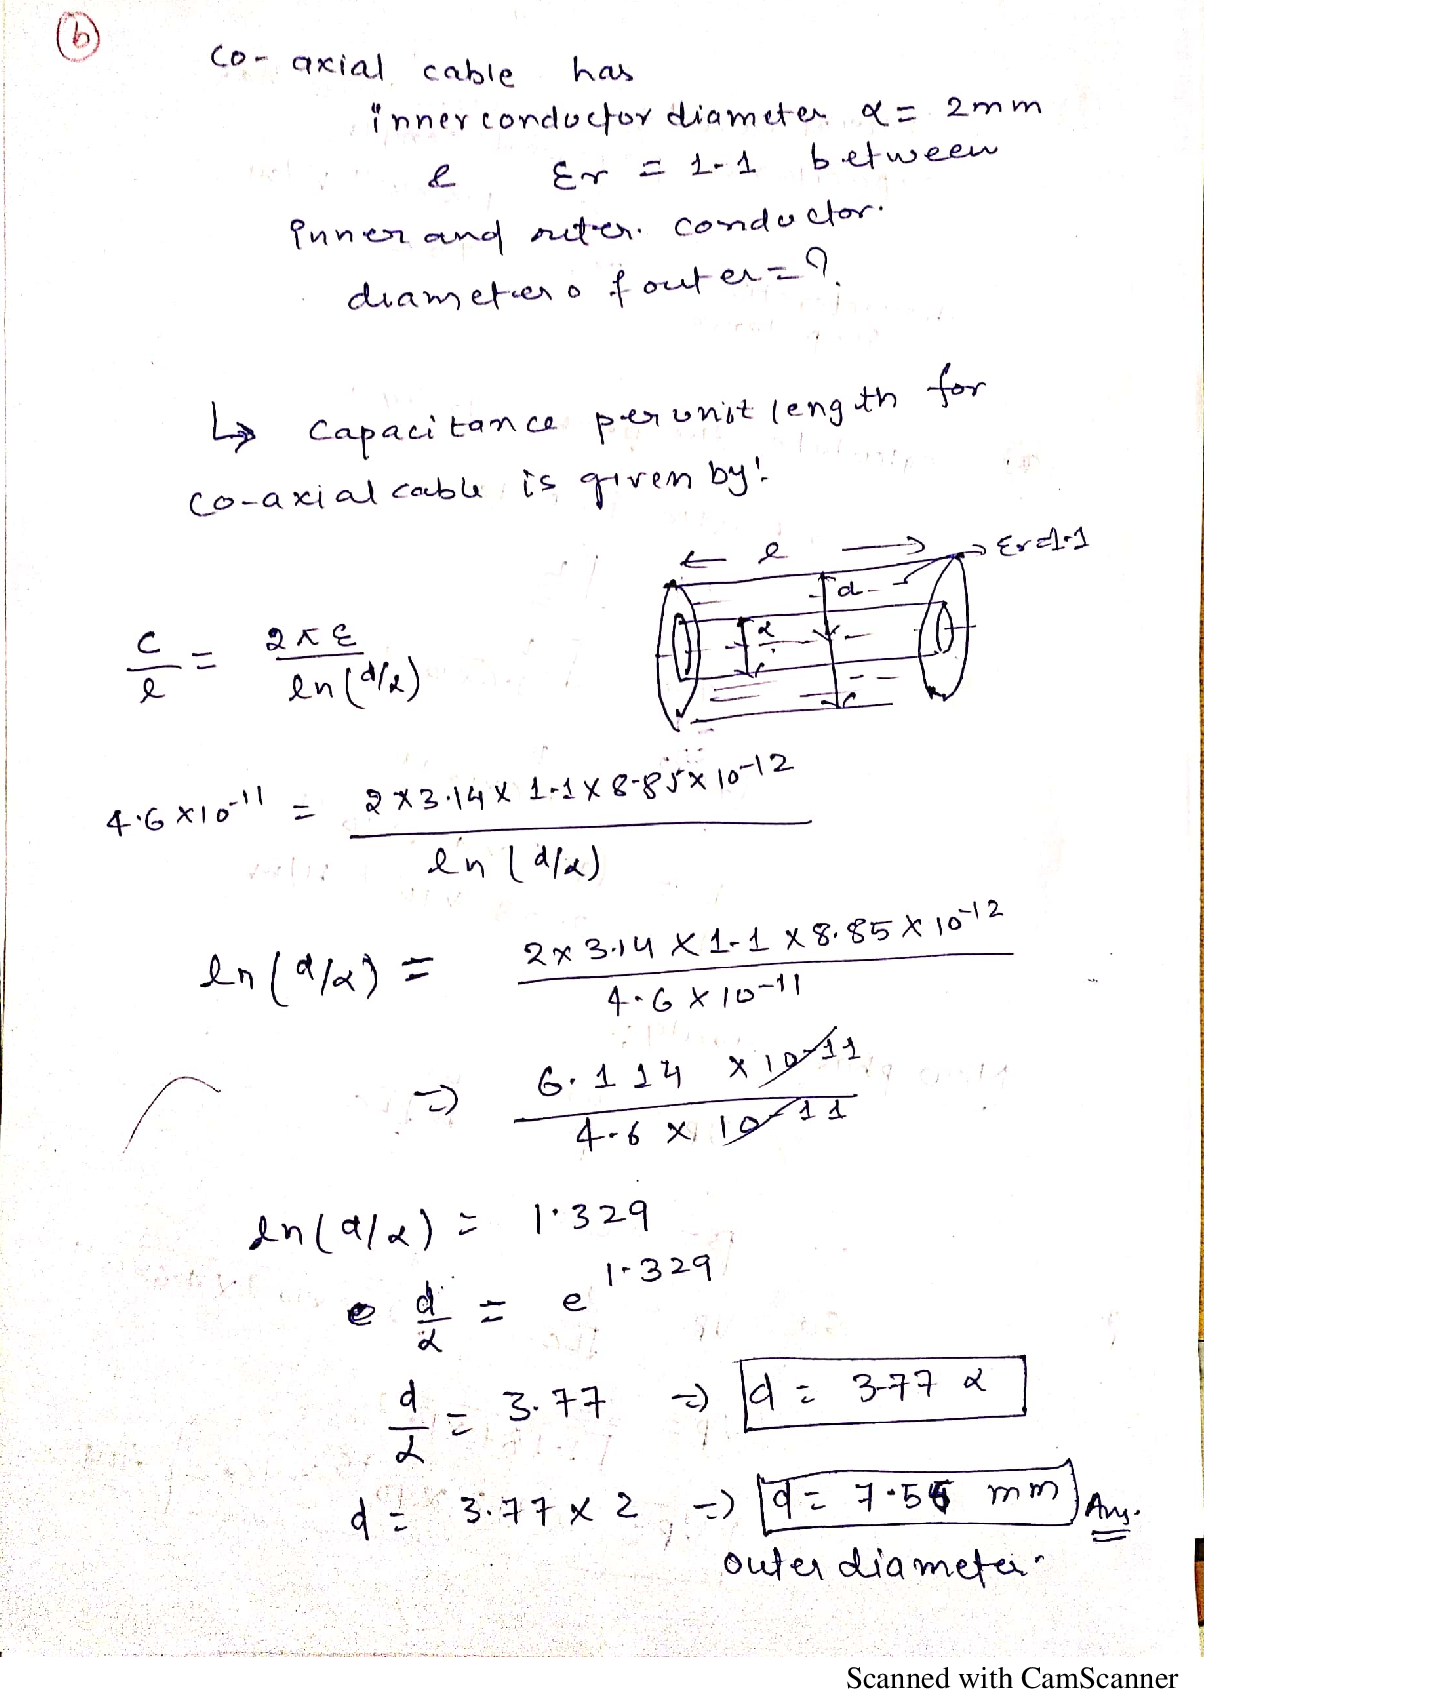 (b)
co-axial cable has
inner conductor diameter α = 2mm
& εr = 1.1 between
inner and outer conductor.
diameter of outer = ?
↳ capacitance per unit length for
co-axial cable is given by!
← l → → εr=1.1
d
α
c/l = 2πε / ln(d/α)
4.6 × 10^-11 = 2×3.14× 1.1×8.85×10^-12 / ln(d/α)
ln(d/α) = 2×3.14×1.1×8.85×10^-12 / 4.6×10^-11
⇒ 6.114 × 10^-11 / 4.6 × 10^-11
ln(d/α) = 1.329
d/α = e^1.329
d/α = 3.77 ⇒ d = 3.77 α
d = 3.77 × 2 ⇒ d = 7.5 mm Ans.
outer diameter.
Scanned with CamScanner